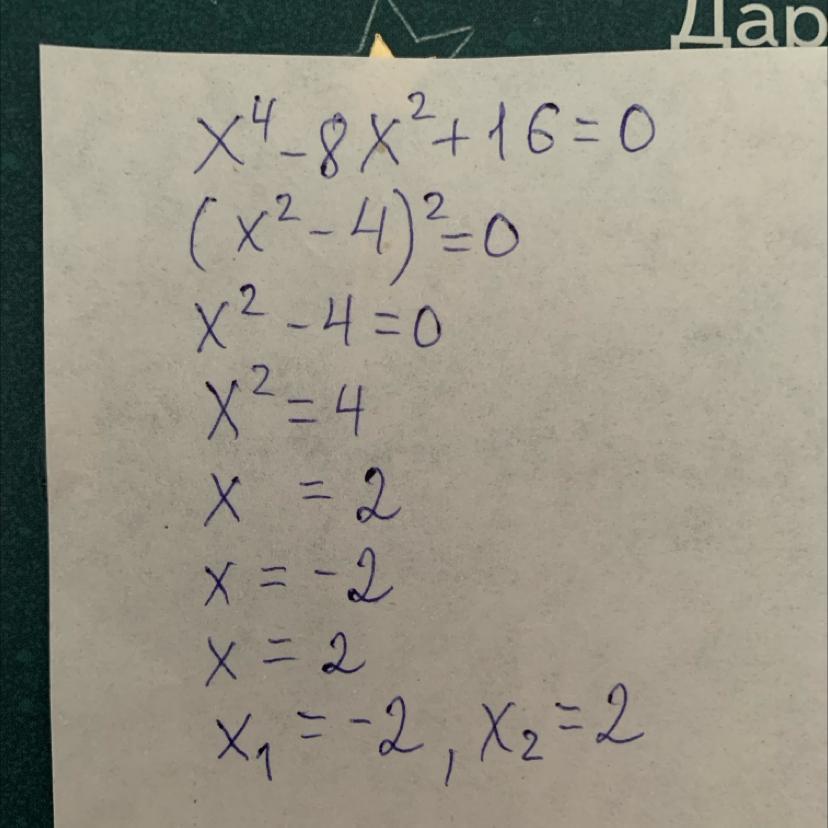 Дар
x⁴-8x²+16=0
(x²-4)²=0
x²-4=0
x²=4
x = 2
x=-2
x=2
x₁=-2, x₂=2